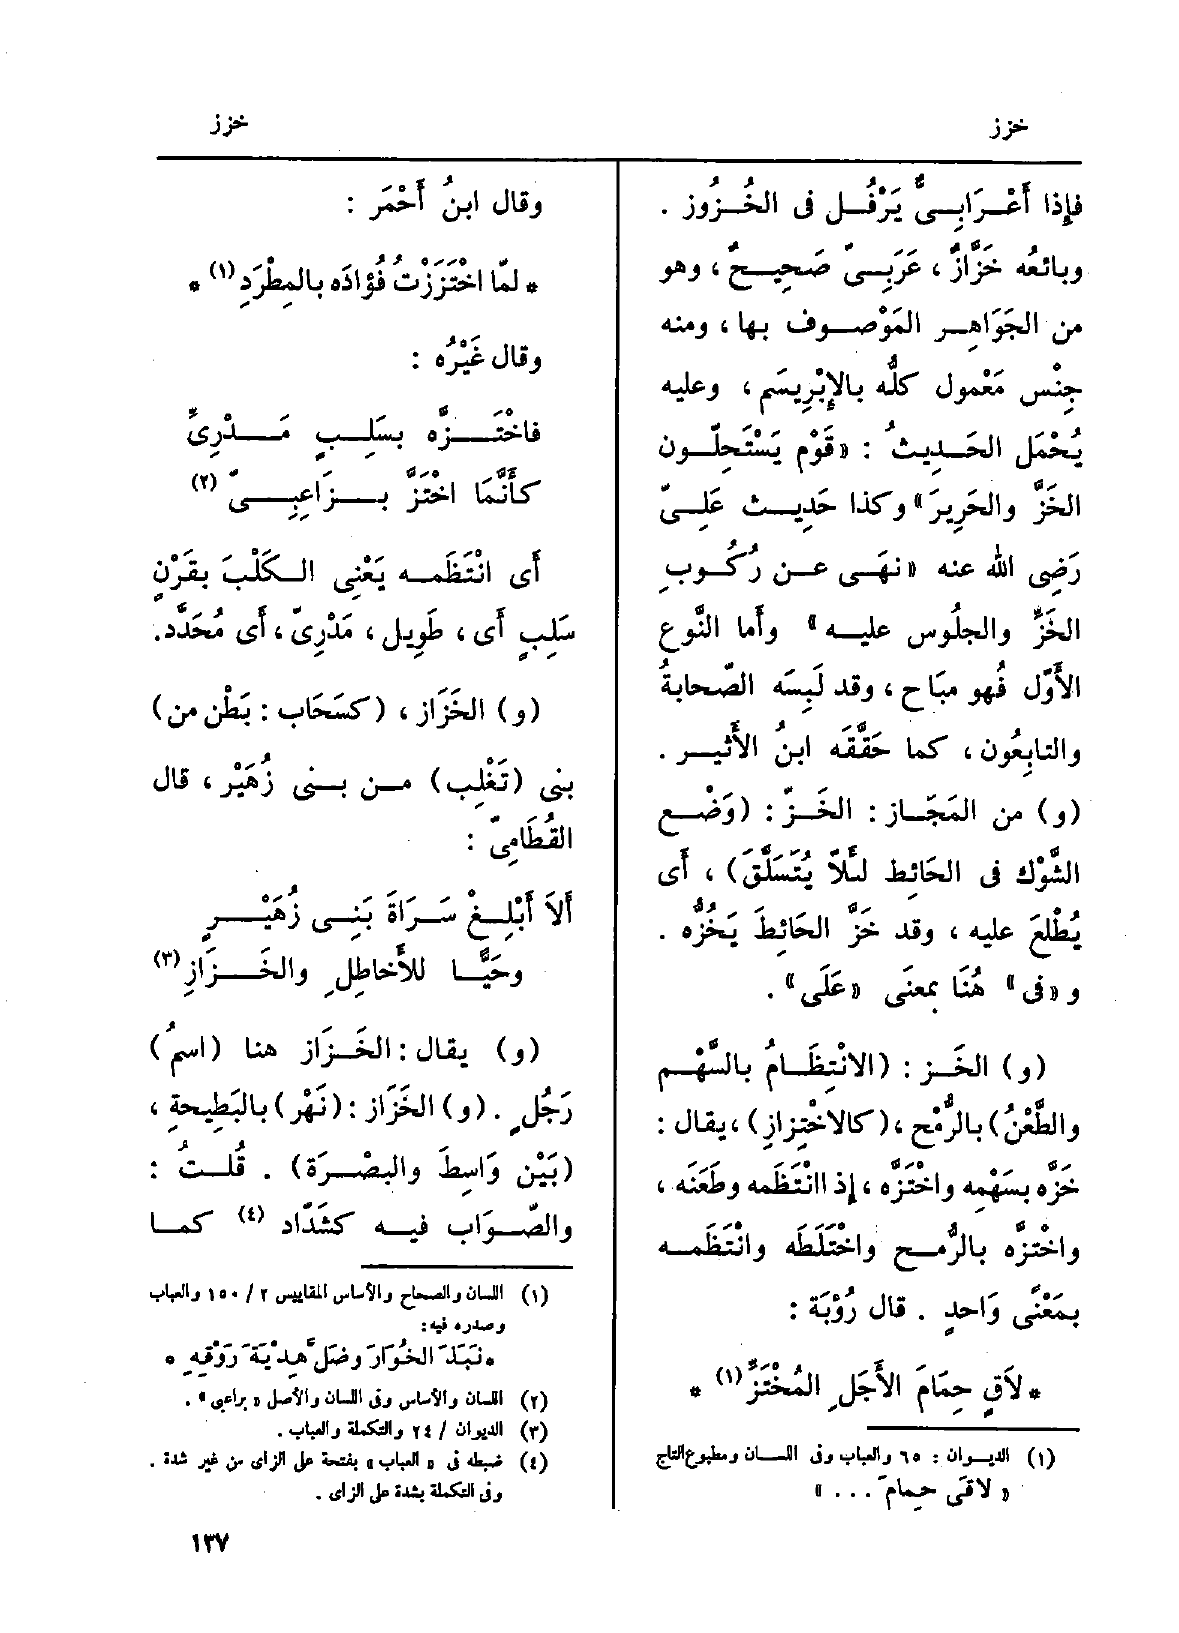 خزز
فإذا أَعْرَابِىٌّ يَرْفُل فى الخُزُوز .
وبائعُه خَزَّازٌ ، عَرَبِىّ صَحِيحٌ ، وهو
من الجَوَاهِر المَوْصوف بها ، ومنه
جِنْس مَعْمول كلُّه بالإِبْرِيسَم ، وعليه
يُحْمَل الحَديثُ : « قَوْم يَسْتَحِلّون
الخَزَّ والحَرِيرَ » وكذا حَدِيث عَلِىّ
رَضِى الله عنه « نهَى عن رُكُوبِ
الخَزِّ والجلُوس عليه » وأَما النَّوع
الأَوّل فُهو مبَاح ، وقد لَبِسَه الصّحابةُ
والتابِعُون ، كما حَقَّقَه ابنُ الأَثير .
(و) من المَجَاز : الخَزّ : (وَضْع
الشَّوْك فى الحَائط لئلاَّ يُتَسَلَّقَ) ، أَى
يُطْلَعَ عليه ، وقد خَزَّ الحَائِطَ يَخُزُّه .
و« فى » هُنَا بمعنَى « عَلَى » .
(و) الخَز : (الانْتِظَامُ بالسَّهْم
والطَّعْنُ) بالرُّمْح ، (كالاخْتِزازِ) ، يقال :
خَزَّه بسَهْمِه واخْتَزَّه ، إذ اانْتَظَمه وطَعَنَه ،
واخْتزَّه بالرُّمح واخْتَلَطَه وانْتَظَمه
بمَعْنًى وَاحدٍ . قال رُؤْبَة :
* لاَقِ حِمَامَ الأَجَلِ المُخْتَزِّ (١) *
(١) الديوان : ٦٥ والعباب وفى اللسان ومطبوع التاج
« لاقَى حِمامَ . . . »
خزز
وقال ابنُ أَحْمَر :
* لمّا اخْتَزَزْتُ فُؤادَه بالمِطْرَدِ (١) *
وقال غَيْرُه :
فاخْتَزَّه بسَلِبٍ مَدْرِىِّ
كأَنَّمَا اخْتَزَّ بزَاعِبِىّ (٢)
أَى انْتَظَمه يَعْنِى الكَلْبَ بقَرْنٍ
سَلِبٍ أَى ، طَوِيل ، مَدْرِىّ ، أَى مُحَدَّد.
(و) الخَزَاز ، (كسَحَاب : بَطْن من)
بنى (تَغْلِب) من بنى زُهَيْر ، قال
القُطَامِىّ :
أَلاَ أَبْلِغْ سَرَاةَ بَنِى زُهَيْرٍ
وحَيًّا للأَخاطِلِ والخَزَازِ (٣)
(و) يقال : الخَزاز هنا (اسمُ)
رَجُلٍ . (و) الخَزَاز : (نَهْر) بالبَطِيحةِ ،
(بَيْن وَاسِطَ والبصْرَة) . قُلتُ :
والصّوَاب فيه كشَدَّاد (٤) كما
(١) اللسان والصحاح والأساس المقاييس ٢ / ١٥٠ والعباب
وصدره فيه:
(٢) اللسان والأساس وفى اللسان والأصل « براعبى » .
(٣) الديوان / ٢٤ والتكملة والعباب .
(٤) ضبطه فى « العباب » بفتحة على الزاى من غير شدة .
وفى التكملة بشدة على الزاى .
١٣٧